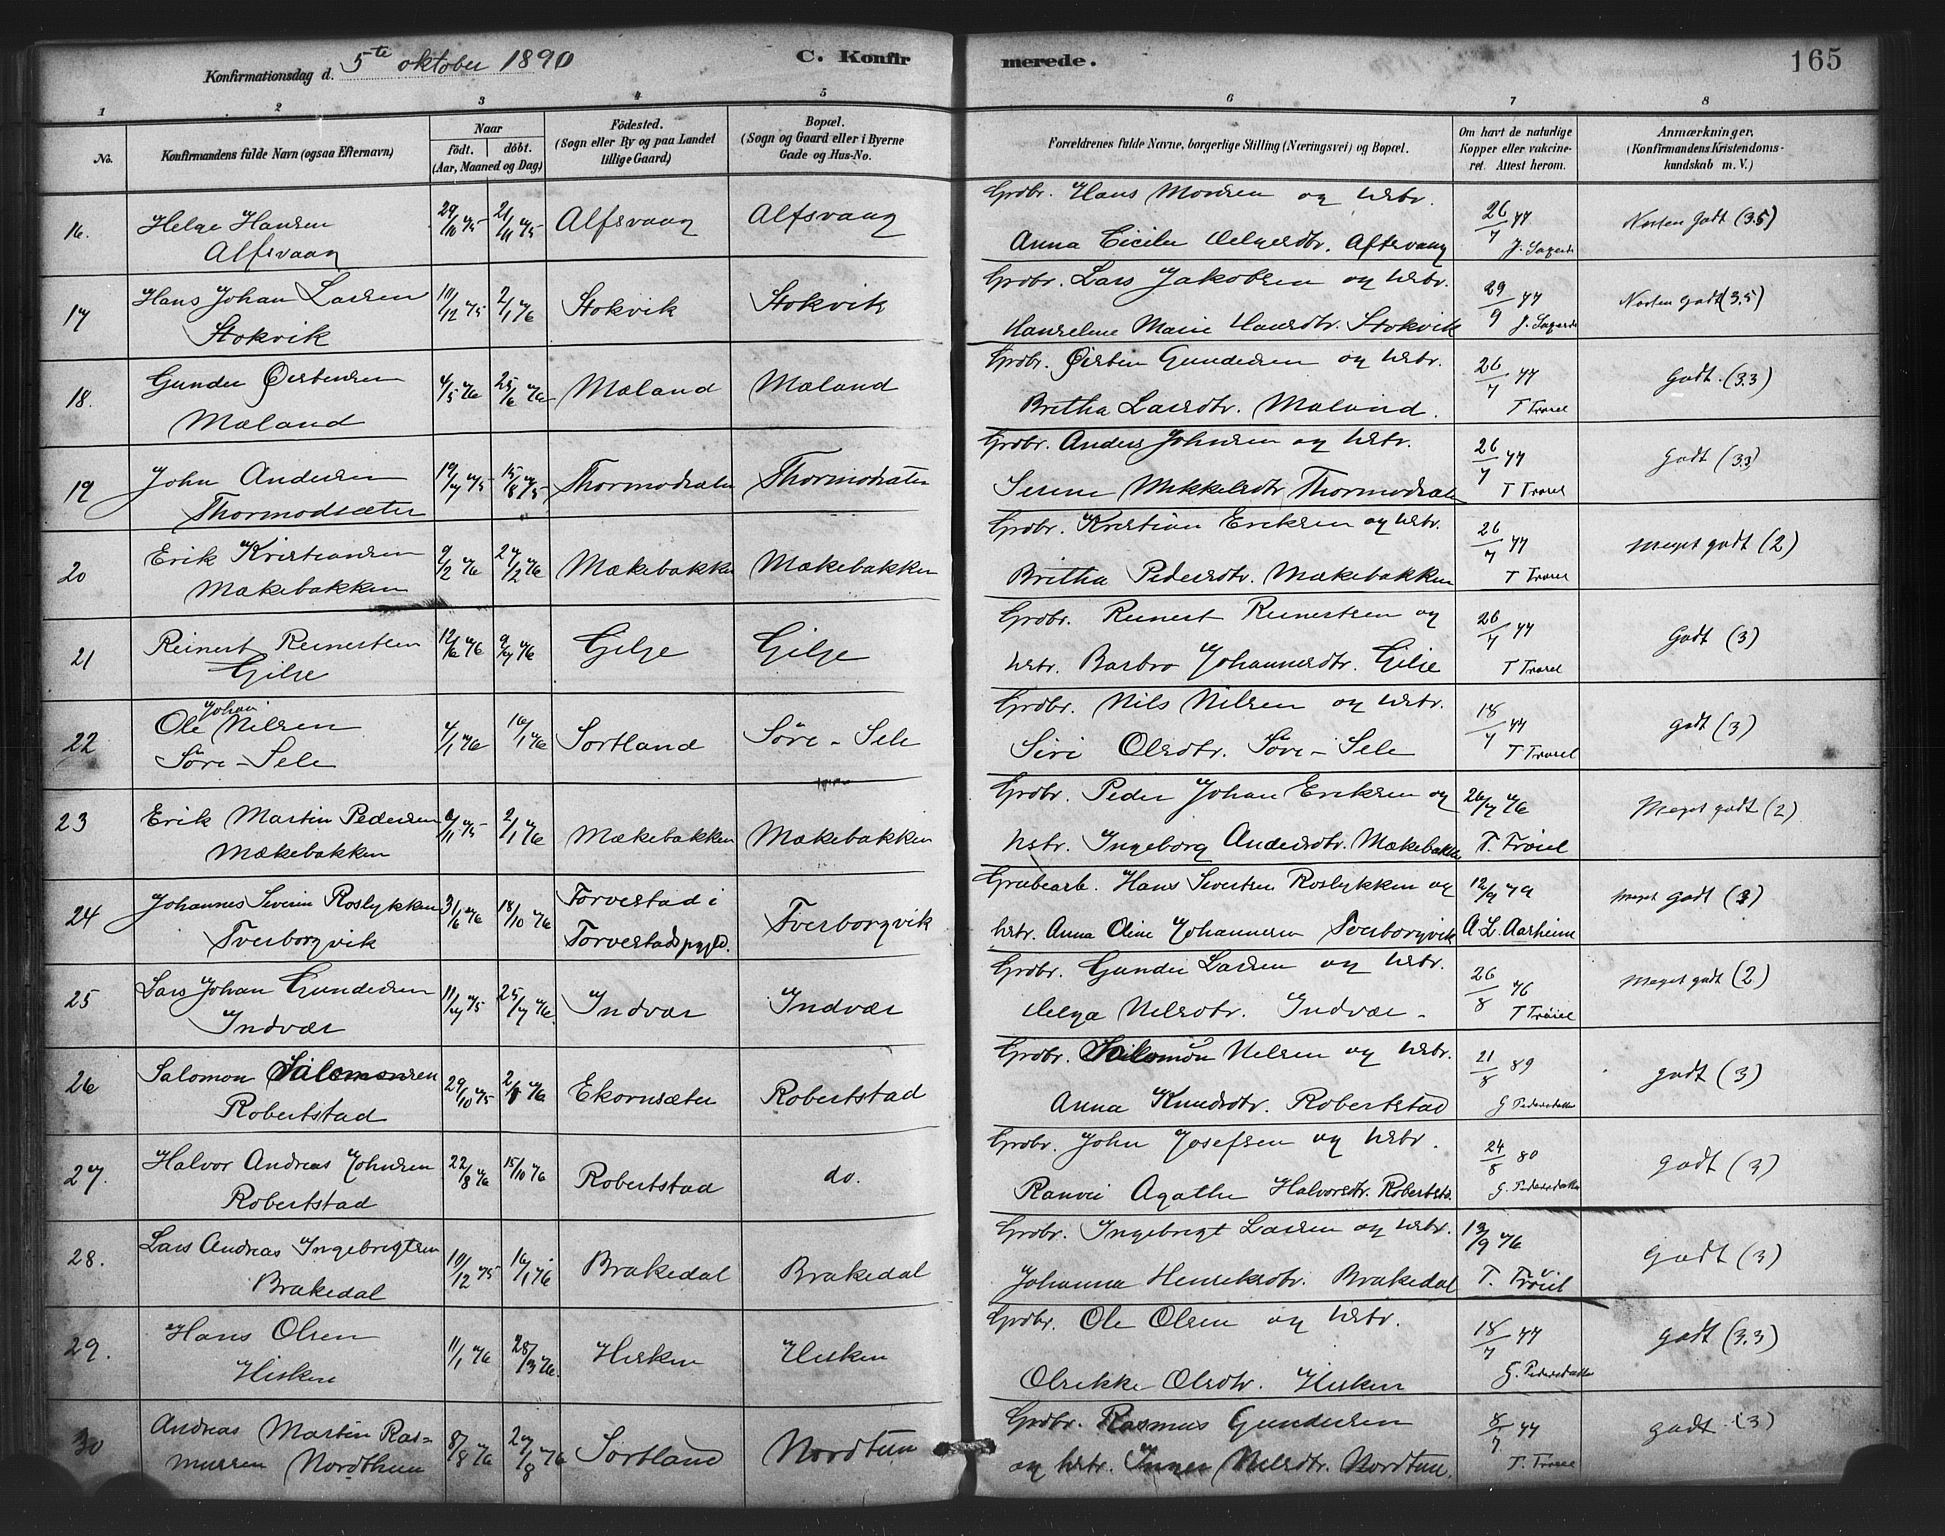 Konfirmationsdag d. 5te oktober 1890
C. Konfir merede.
165
1 2 3 4 5 6 7 8
No.
Konfirmandens fulde Navn (ogsaa Efternavn)
Naar
födt. döbt.
(Aar, Maaned og Dag)
Födested.
(Sogn eller By og paa Landet
tillige Gaard)
Bopæl.
(Sogn og Gaard eller i Byerne
Gade og Hus-No.
Forældrenes fulde Navne, borgerlige Stilling (Næringsvei) og Bopæl.
Om havt de naturlige
Kopper eller vakcine-
ret. Attest herom.
Anmærkninger,
(Konfirmandens Kristendoms-
kundskab m. V.)
16. Helge Hansen 29/10 75 21/11 75 Alfsvaag Alfsvaag Grdbr. Hans Monsen og hstr. 26/7 77 Næsten godt (3.5)
Alfsvaag Anna Cicilie Helgesdtr. Alfsvaag
17 Hans Johan Larsen 10/12 75 2/1 76 Stokvik Stokvik Grdbr. Lars Jakobsen og hstr. 29/9 77 Næsten godt (3.5)
Stokvik Hanseline Marie Hansdtr. Stokvik
18. Gunder Østensen 4/5 76 25/6 76 Mæland Mæland Grdbr. Østen Gundersen og hstr. 26/7 77 Godt. (3.3)
Mæland Britha Larsdtr. Mæland. T Trøiel
19 John Andersen 19/7 75 15/8 75 Thormodsæter Thormodsæter Grdbr. Anders Johnsen og hstr. 26/7 77 Godt (3.3)
Thormodsæter Serine Mikkelsdtr Thormodsæter T Trøiel
20 Erik Kristiansen 9/2 76 27/2 76 Mækebakken Mækebakken Grdbr. Kristian Eriksen og hstr. 26/7 77 Meget godt (2)
Mækebakken Britha Pedersdtr. Mækebakken T Trøiel
21 Reinert Reinertsen 12/6 76 9/7 76 Gilje Gilje Grdbr. Reinert Reinertsen og 26/7 77 Godt (3)
Gilje hstr. Barbro Johannesdtr. Gilje T Trøiel
22 Ole Johan Nilsen 4/1 76 16/1 76 Sortland Söre-Sele Grdbr. Nils Nilsen og hstr. 18/7 77 godt (3)
Söre-Sele Siri Olsdtr. Söre-Sele T Trøiel
23 Erik Martin Pedersen 2/1 76 Mækebakken Mækebakken Grdbr. Peder Johan Eriksen og 26/7 76 Meget godt (2)
Mækebakken hstr. Ingeborg Andersdtr. Mækebakken T. Trøiel
24 Johannes Severin Roslykken 3/6 76 18/10 76 Torvestad i Tverborgvik Grubearb. Hans Sivertsen Roslykken og 12/9 79 meget godt
Tverborgvik Torvestads pgjld. hstr. Anna Oline Johannesen Tverborgvik A. L. Aarheim
25 Lars Johan Gundersen 11/7 75 25/7 76. Indvær Indvær Grdbr. Gunder Larsen og hstr. 26/8 76 Meget godt (2)
Indvær Helga Nilsdtr. Indvær - T Trøiel
26 Salomon Salomonsen 29/10 75 Ekornsæter Robertstad Grdbr. Salomon Nilsen og hstr. 21/8 89 godt (3)
Robertstad Anna Knudsdtr. Robertstad
27. Halvor Andreas Johnsen 22/8 76 15/10 76 Robertstad do. Grdbr. John Josefsen og hstr. 24/8 80 godt (3)
Robertstad Ranvei Agathe Halvorsdtr. Robertst.
28. Lars Andreas Ingebrigtsen 10/12 75 16/1 76 Brækedal Brækedal Grdbr. Ingebrigt Larsen og hstr. 13/9 76 Godt (3)
Brækedal Johanna Henriksdtr. Brækedal T. Trøiel
29. Hans Olsen 11/1 76 28/3 76. Hisken Hisken Grdbr. Ole Olsen og hstr. 18/7 77 godt (3.3)
Hisken Olrikke Olsdtr. Hisken
30 Andreas Martin Ras= 8/8 76 27/8 76 Sortland Nordtun Grdbr. Rasmus Gundersen 8/7 77 godt (3)
mussen Nordthun og hstr. Inger Nilsdtr. Nordtun. T. Trøiel